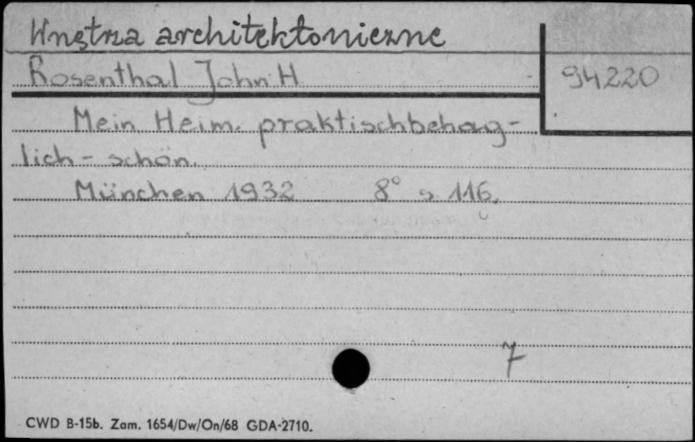 Wnętrza architektoniczne
Rosenthal John H. 94220
Mein Heim. praktischbehag-
lich-schön.
München 1932 8° s 116.
7
CWD B-15b. Zam. 1654/Dw/On/68 GDA-2710.